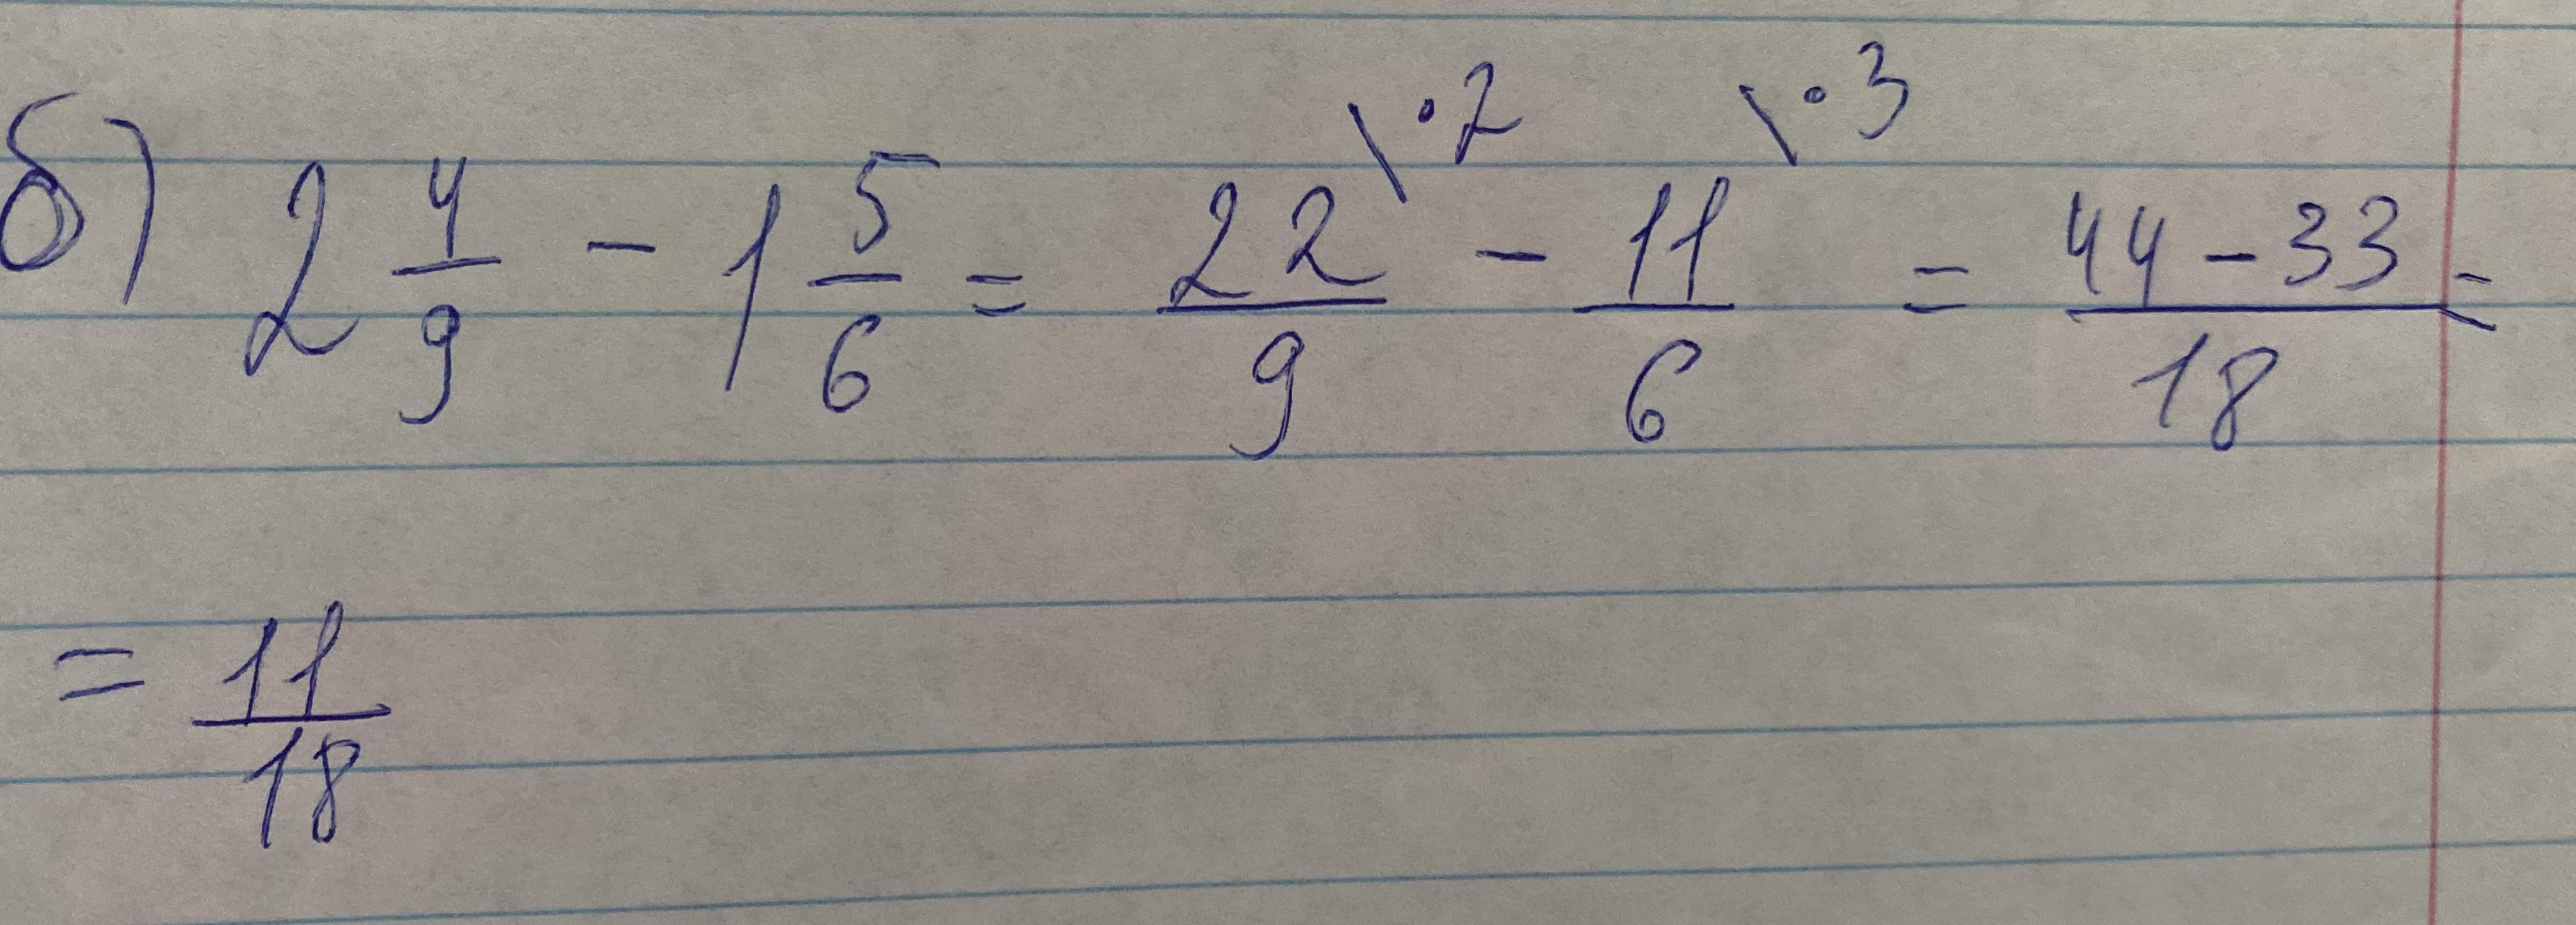 б) 2 4/9 - 1 5/6 = 22/9 \·2 - 11/6 \·3 = (44 - 33)/18 =
= 11/18